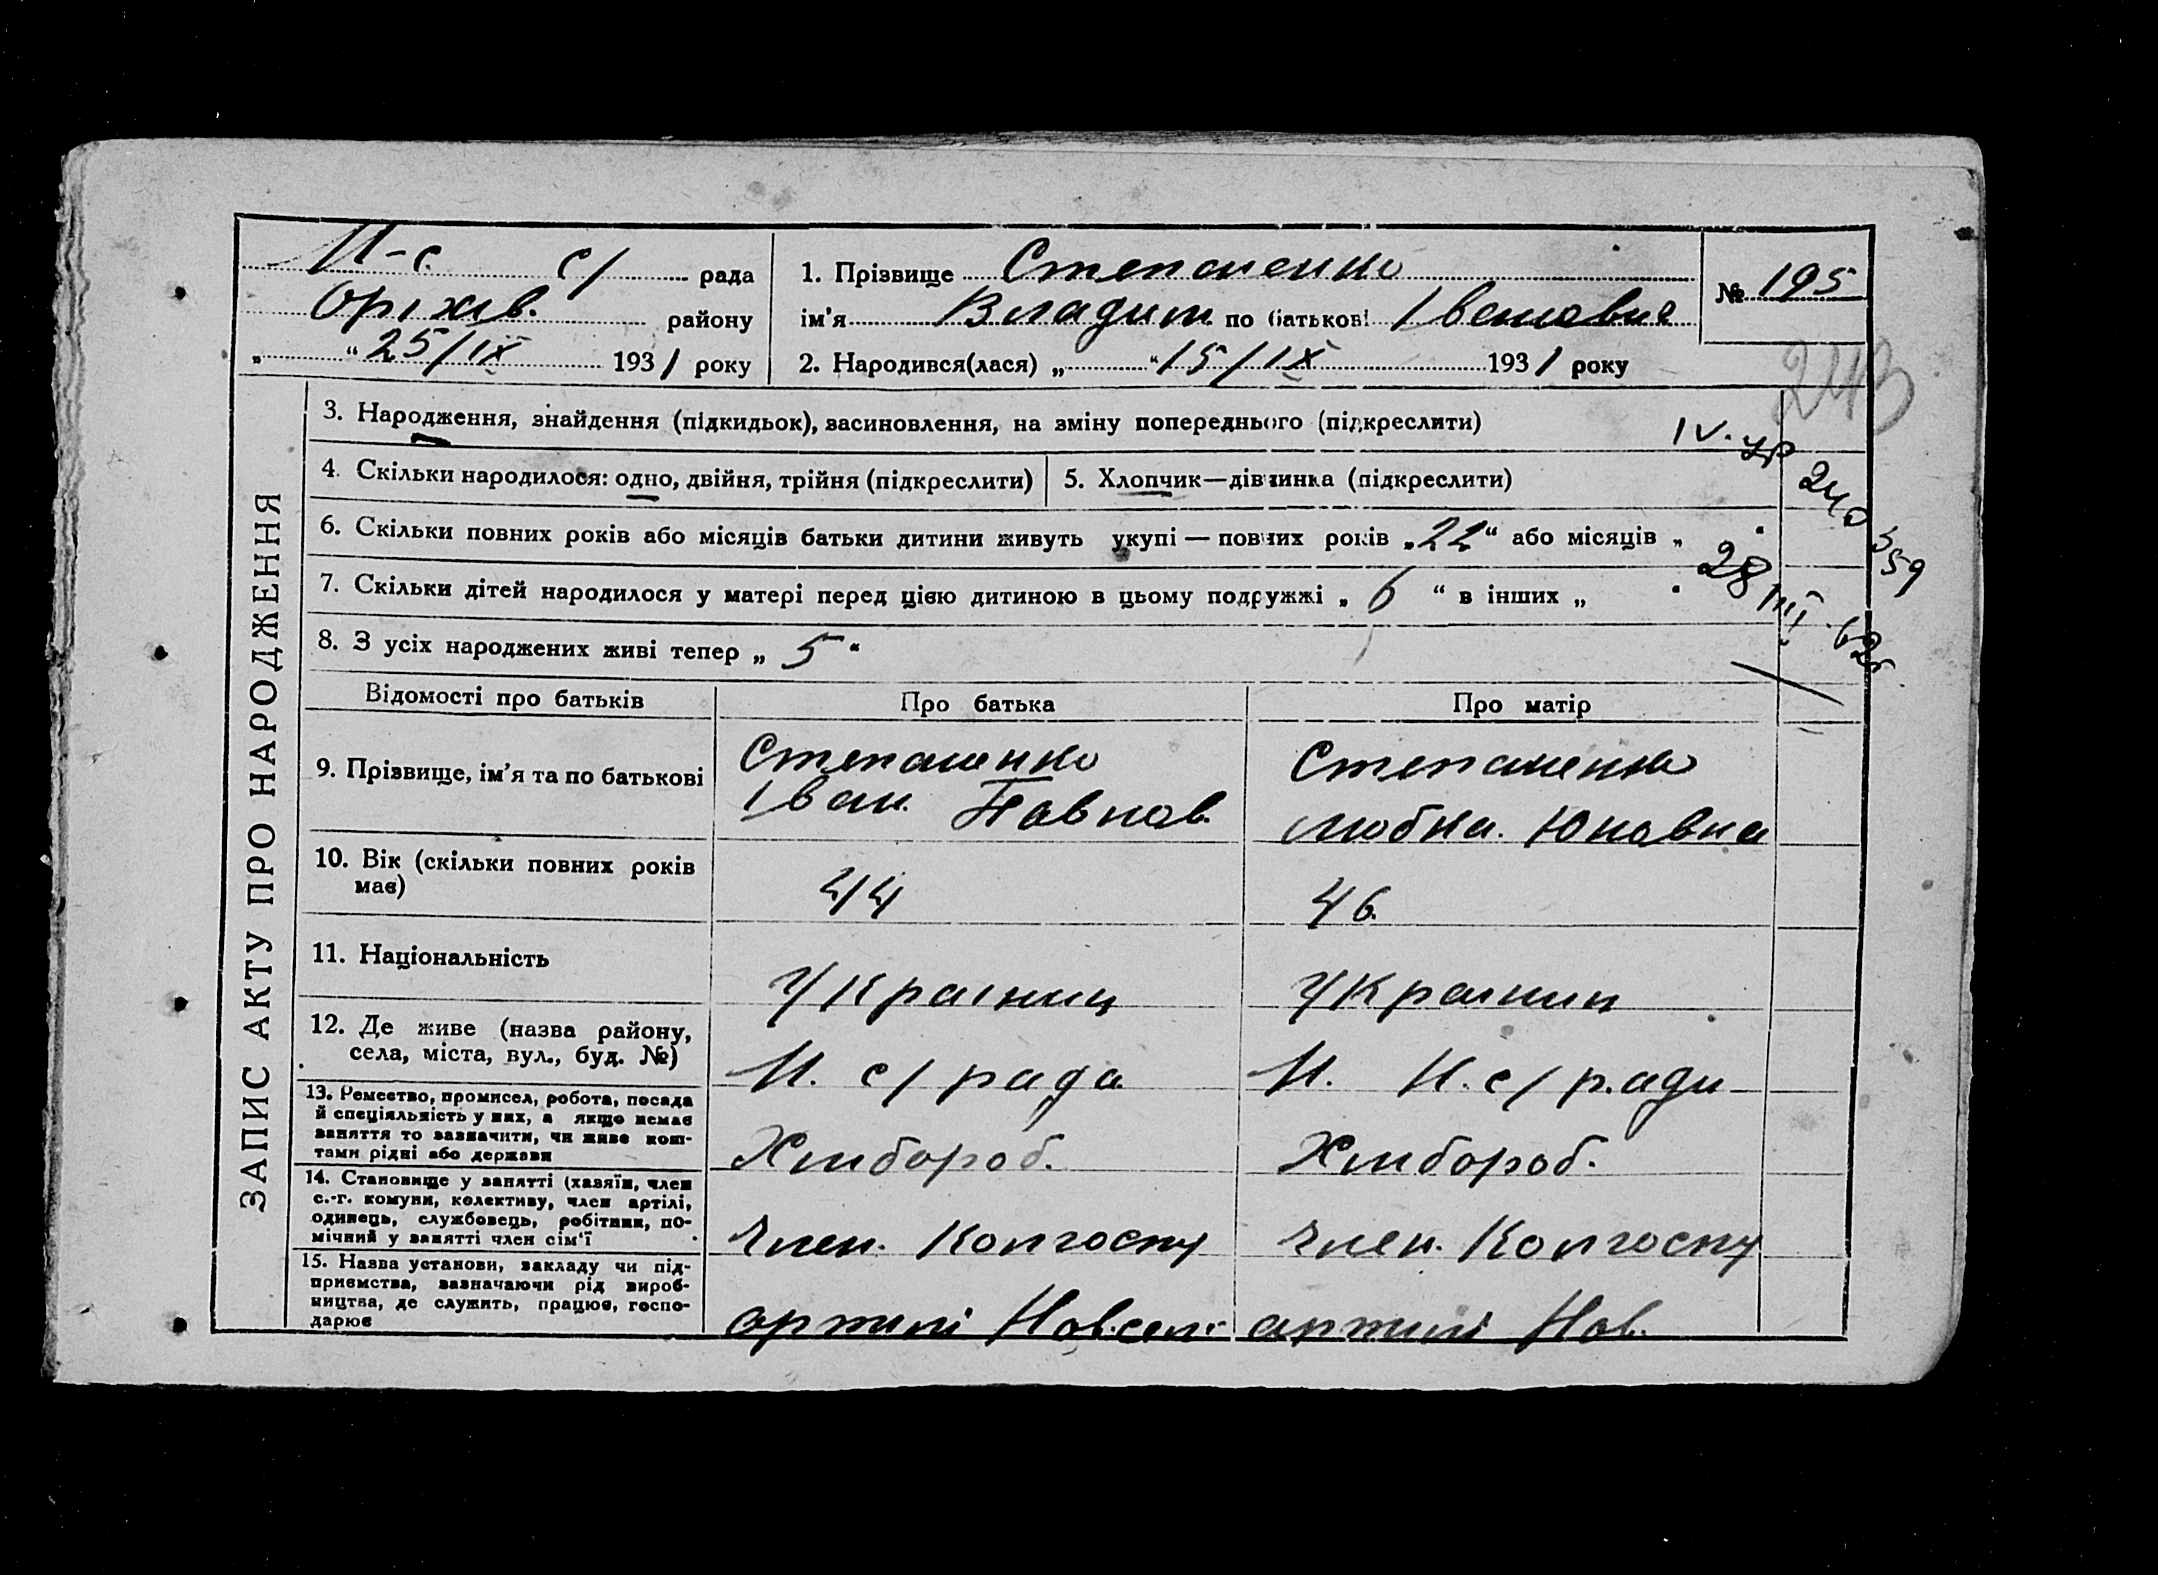 И-с. с/ рада
Оріхів. району
„ “ 25/IX 1931 року
1. Прізвище Степаненко
ім’я Владим. по батькові Івановіч
2. Народився(лася) „ “ 15/IX 1931 року
№ 195
243
ЗАПИС АКТУ ПРО НАРОДЖЕННЯ
3. Народження, знайдення (підкидьок), засиновлення, на зміну попереднього (підкреслити)
4. Скільки народилося: одно, двійня, трійня (підкреслити)
5. Хлопчик—дівчинка (підкреслити)
6. Скільки повних років або місяців батьки дитини живуть укупі — повних років „22“ або місяців „ “
7. Скільки дітей народилося у матері перед цією дитиною в цьому подружжі „ 6 “ в інших „ “
8. З усіх народжених живі тепер „ 5 “
IV-УР 240359
28 III 62г.
Відомості про батьків
Про батька
Про матір
9. Прізвище, ім’я та по батькові
Степаненко
Іван. Павлов.
Степаненко
Юновна
10. Вік (скільки повних років
має)
44
46
11. Національність
Українец
Украинец
12. Де живе (назва району,
села, міста, вул., буд. №)
И. с/рада
И. И. с/ради
13. Ремество, промисел, робота, посада
й спеціяльність у них, а якщо немає
заняття то зазначити, чи живе кош-
тами рідні або держави
Хлібороб.
Хлібороб.
14. Становище у занятті (хазяїн, член
с.-г. комуни, колективу, член артілі,
одинець, службовець, робітник, по-
мічний у занятті член сім’ї
Член. Колгоспу
Член. Колгоспу
15. Назва установи, закладу чи під-
приємства, зазначаючи рід вироб-
ництва, де служить, працює, госпо-
дарює
артилі Нов.сел.
артилі Нов.